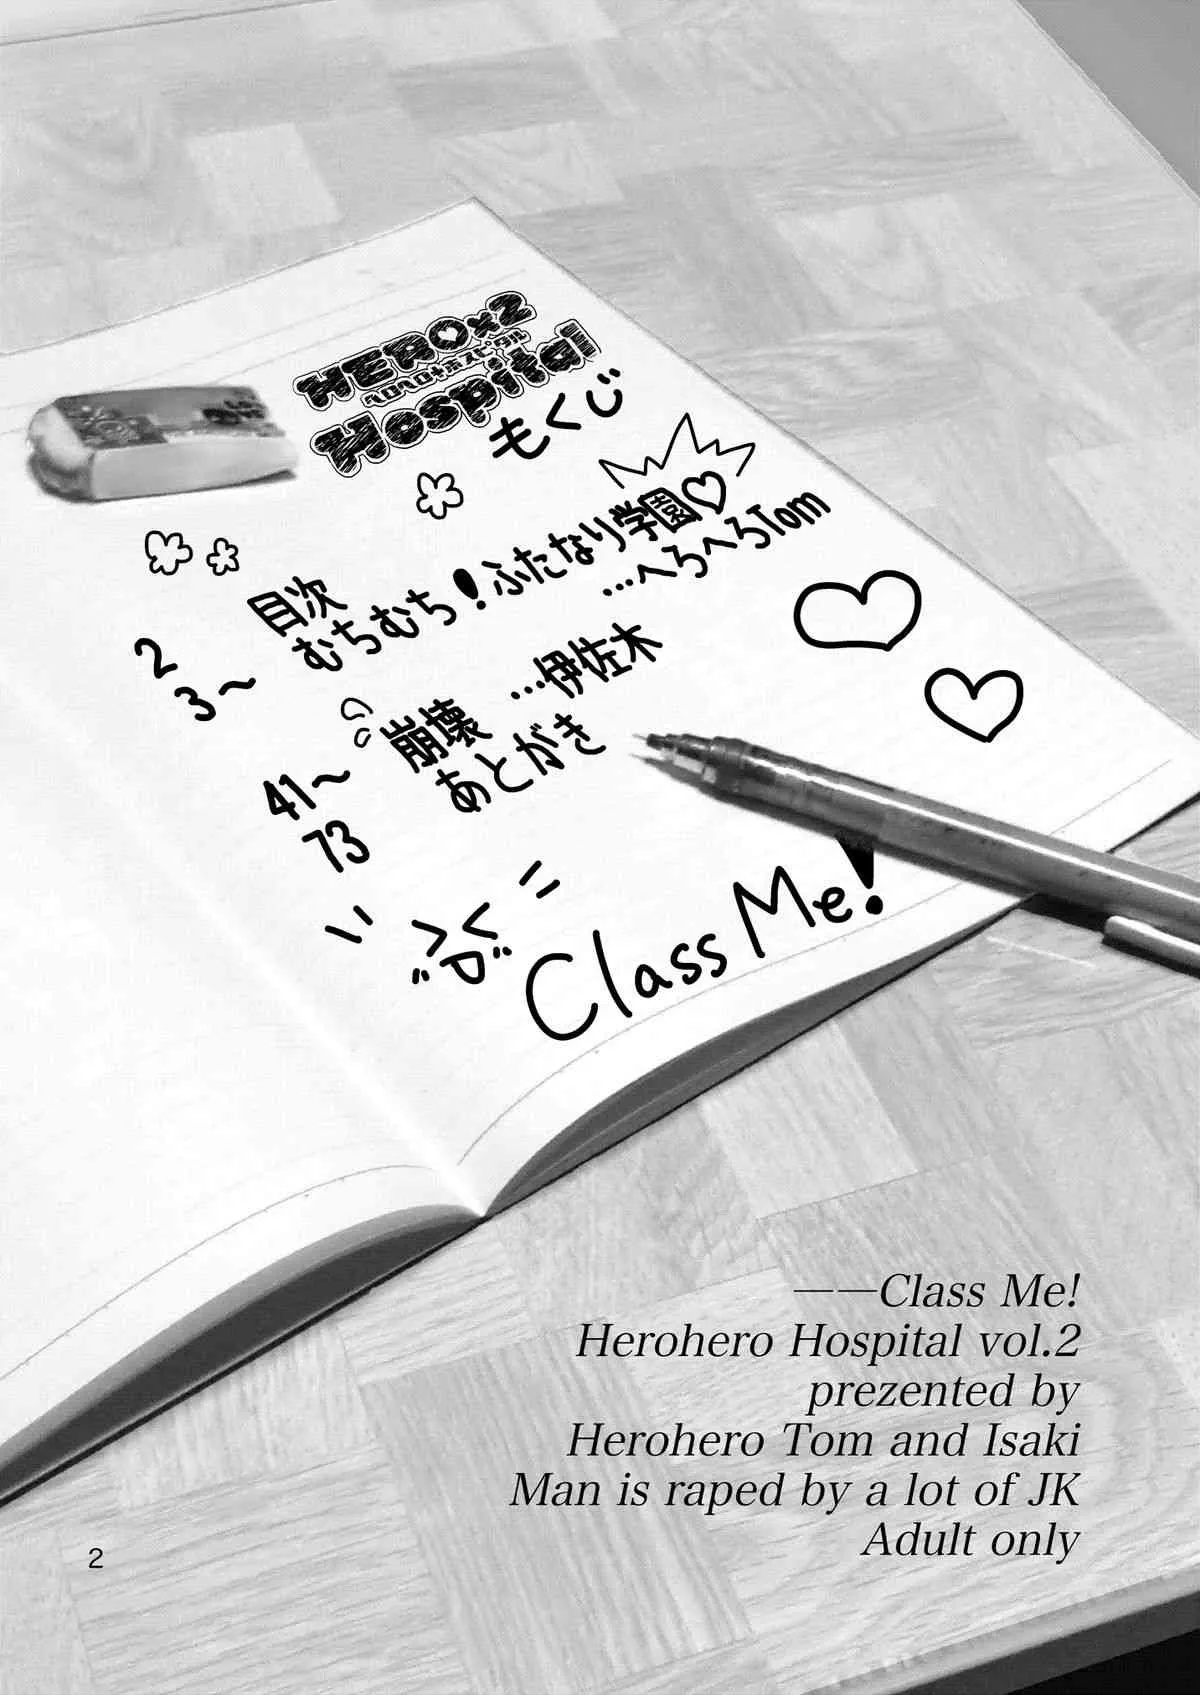 HERO×2
ヘロヘロ+ホスピタル
Hospital
もくじ
2 目次
3～ むちむち！ふたなり学園♡
…へろへろTom
41～ 崩壊 …伊佐木
73 あとがき
Class Me!
——Class Me!
Herohero Hospital vol.2
prezented by
Herohero Tom and Isaki
Man is raped by a lot of JK
Adult only
2